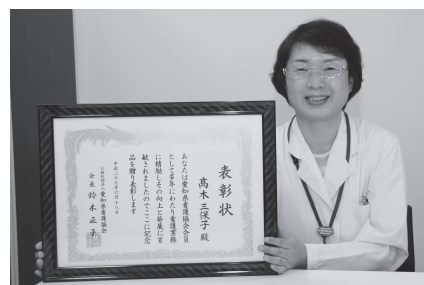 表彰状
髙木 三保子 殿
あなたは愛知県看護協会会員
として多年にわたり看護業務
に精励しその向上と発展に貢
献されましたのでここに記念
品を贈り表彰します
平成二十七年六月十八日
公益社団法人愛知県看護協会
会長 鈴木正子